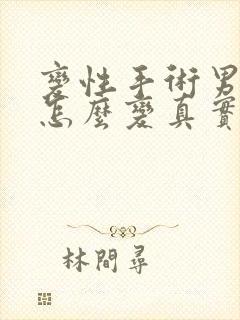 變性手術男
怎麼變真實
林間尋